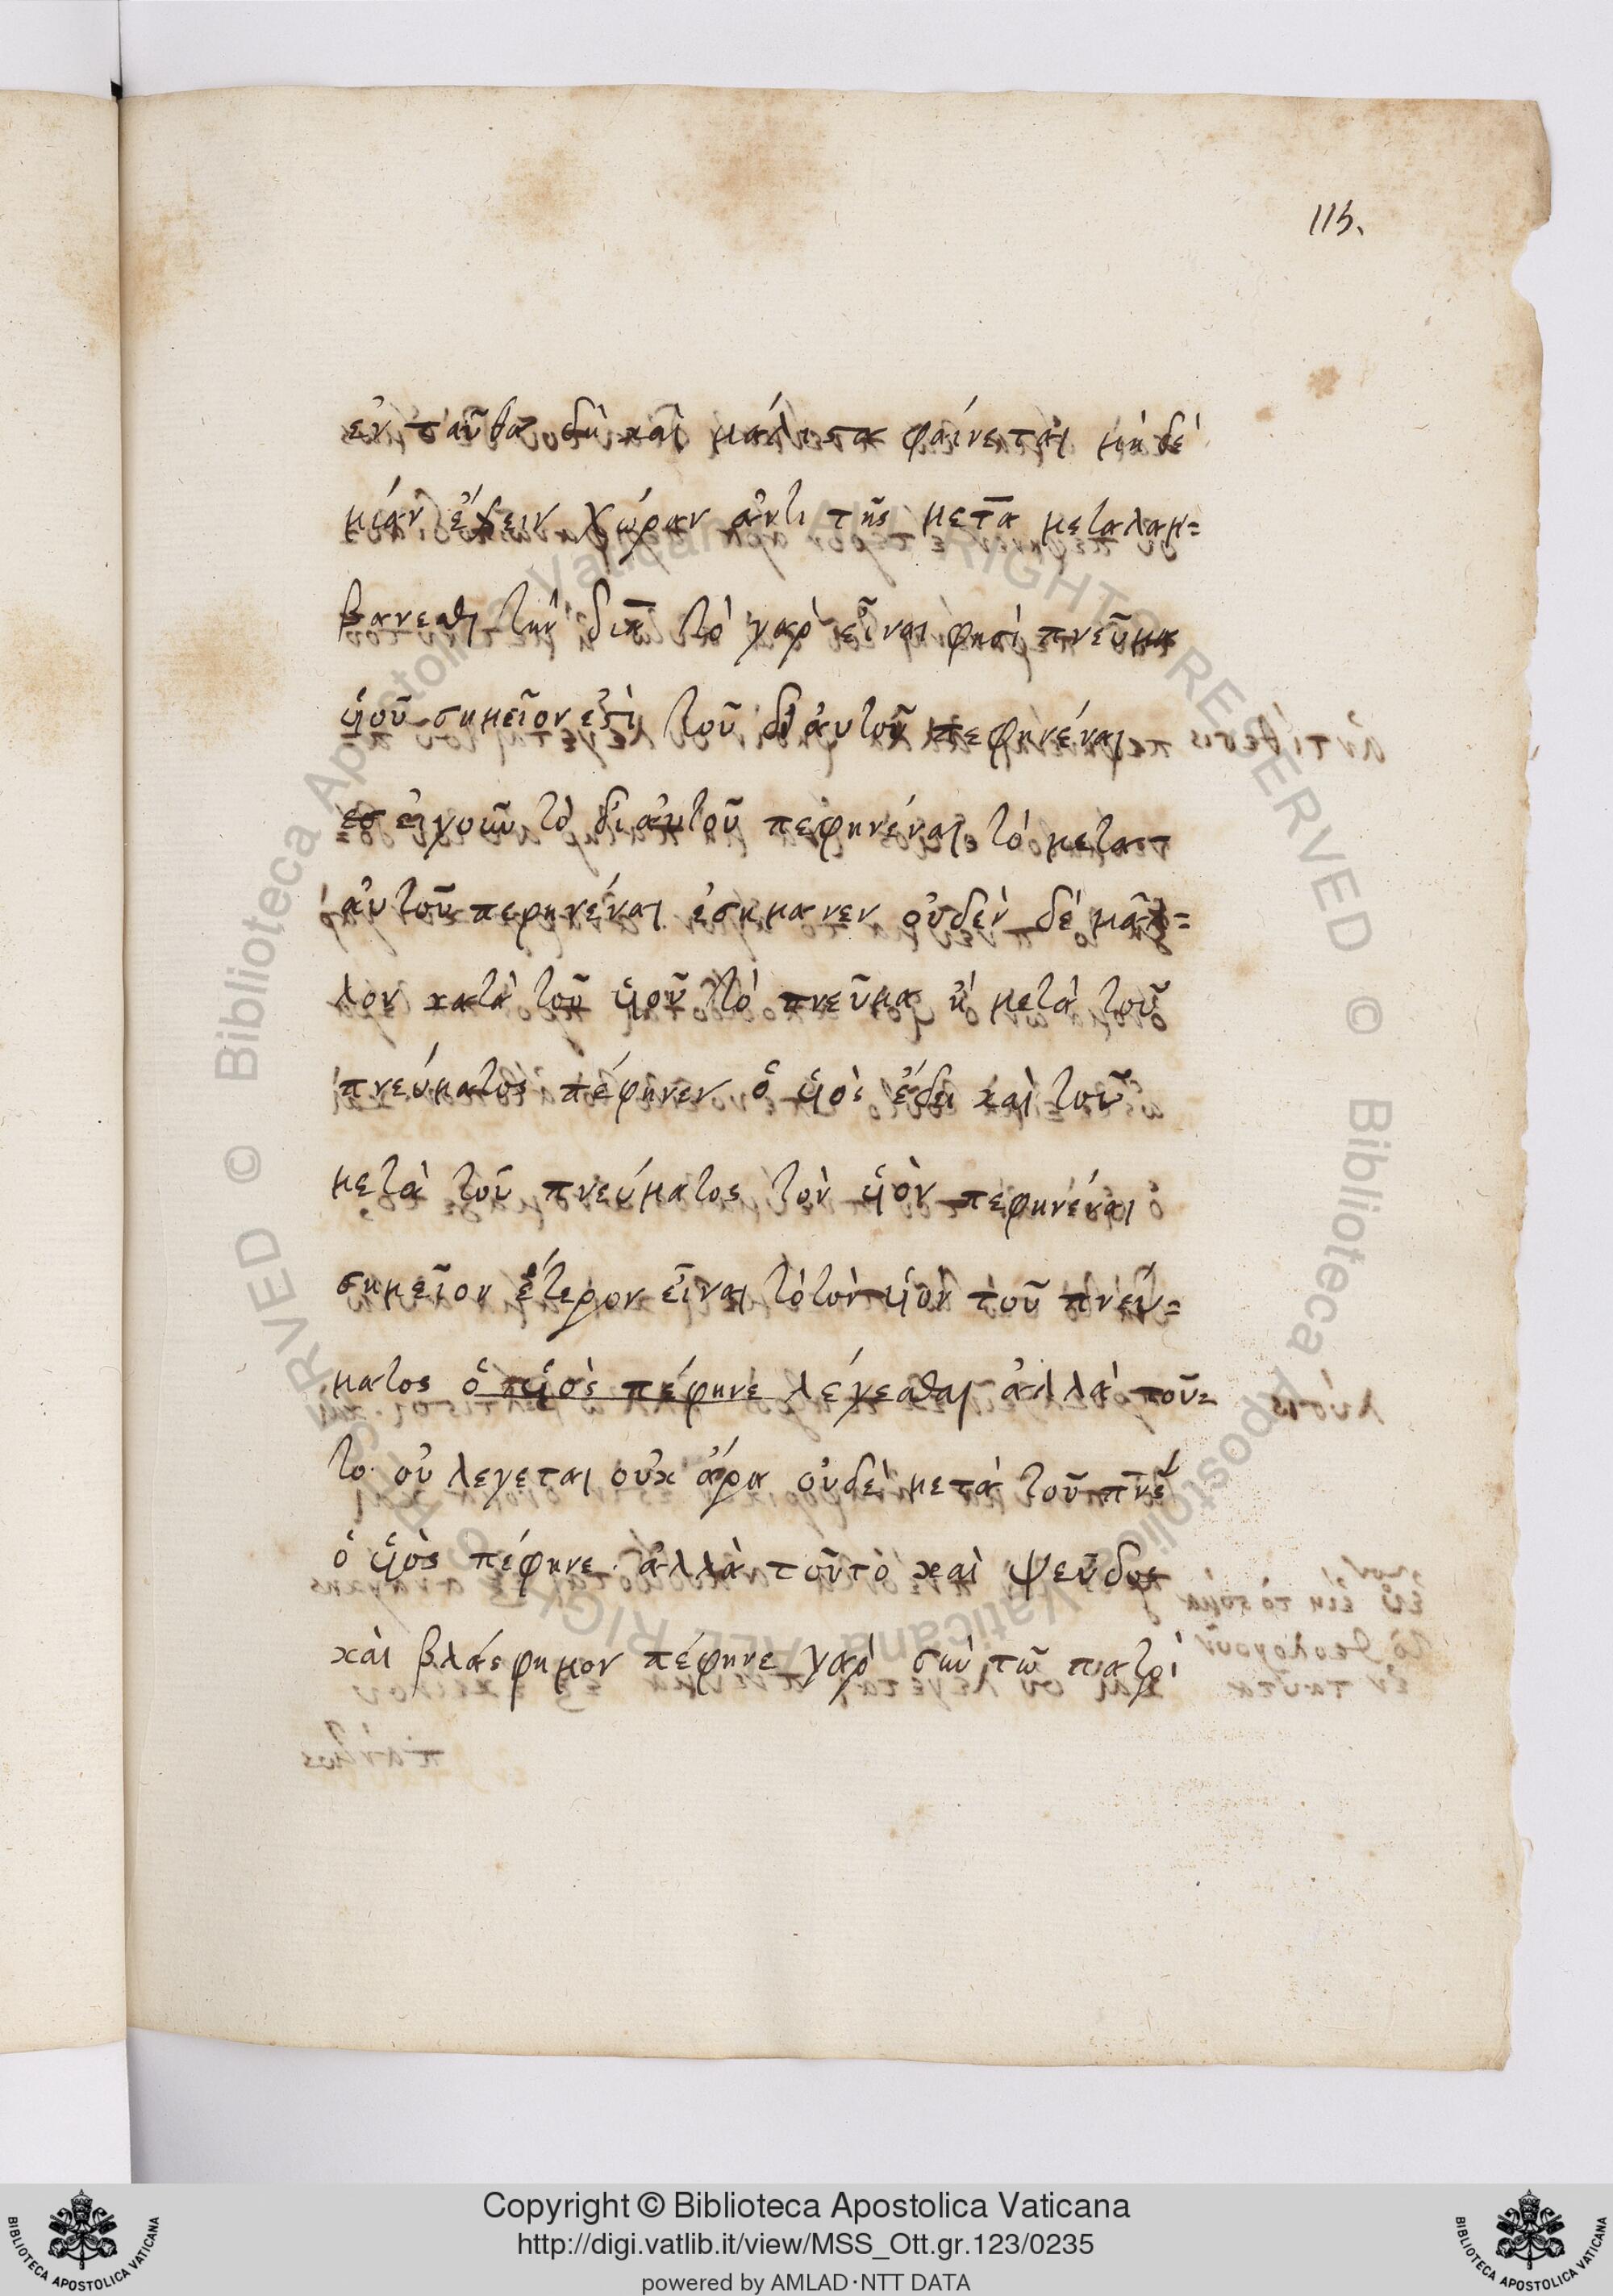 115.
ἐνταῦθα δὴ καὶ μάλιστα φαίνεται μὴδὲ
μίαν ἔχειν χώραν ἀντι τῆς μετα μεταλαμ=
βανεσθαι τὴν δια τὸ γαρ εἶναι φησὶ πνεῦμα
ὑιοῦ σημεῖον ἐστὶ τοῦ δι ἀυτοῦ πεφηνέναι
τὸ δι ἀυτοῦ πεφηνέναι τὸ μετα
ἀυτοῦ πεφηνέναι ἐσημανεν οὐδὲν δὲ μᾶλ=
λον κατὰ τοῦ ὑιοῦ τὸ πνεῦμα ἢ μετὰ τοῦ
πνεύματος πέφηνεν ὁ ὑιὸς ἔδει καὶ τοῦ
μετὰ τοῦ πνεύματος τὸν ὑιὸν πεφηνέναι
σημεῖον ἕτερον εἶναι τὸ τὸν ὑιὸν τοῦ πνεύ=
ματος ὁ ὑιὸς πέφηνε λέγεσθαι ἀλλὰ τοῦ=
το οὐ λεγεται οὐκ ἄρα οὐδὲ μετὰ τοῦ πνς
ὁ ὑιὸς πέφηνε ἀλλὰ τοῦτο καὶ ψεῦδος
καὶ βλάσφημον πέφηνε γαρ σὺν τῶ πατρὶ
Copyright © Biblioteca Apostolica Vaticana
http://digi.vatlib.it/view/MSS_Ott.gr.123/0235
powered by AMLAD·NTT DATA
BIBLIOTECA APOSTOLICA VATICANA
BIBLIOTECA APOSTOLICA VATICANA